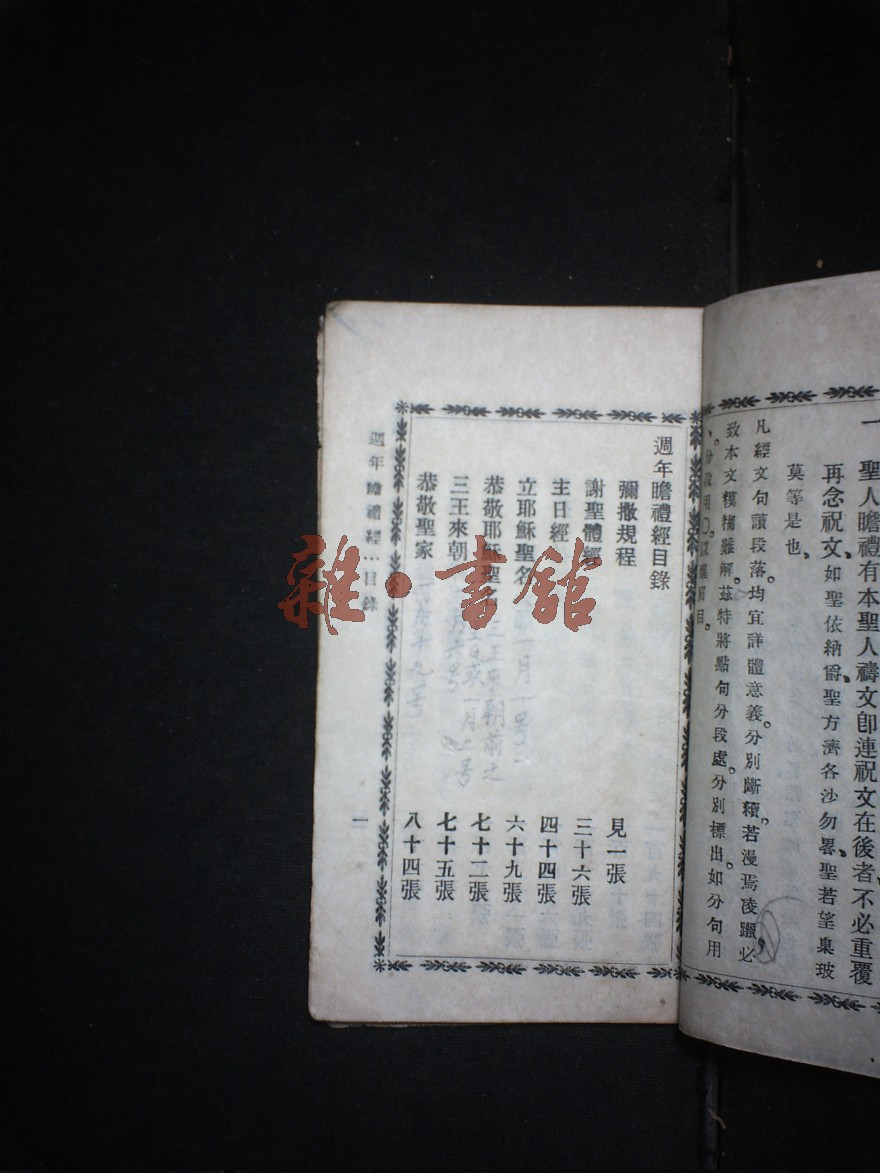 一 聖人瞻禮有本聖人禱文卽連祝文在後者、不必重覆
再念祝文、如聖依納爵聖方濟各沙勿畧、聖若望臬玻
莫等是也、
凡經文句讀段落。均宜詳體意義。分別斷續。若漫焉凌躐。必
致本文模糊難解。茲特將點句分段處。分別標出。如分句用
、。分段用〇。以
目。
週年瞻禮經目錄
彌撒規程 見一張
謝聖體經 三十六張
主日經 四十四張
立耶穌聖名 一月一号 六十九張
恭敬耶穌聖名 三王來朝前之 七十二張
三王來朝 七十五張
恭敬聖家 八十四張
週年瞻禮經：目錄 一
雜·書館